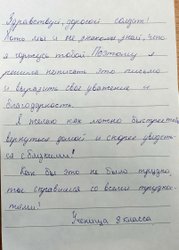 Здравствуй, дорогой солдат!
Хоть мы и не знакомы знай, что
я горжусь тобой. Поэтому я
решила написать это письмо
и выразить свое уважение и
благодарность.
Я желаю как можно быстрее
вернуться домой и скорее увидеть
ся с близкими!
Как бы это не было трудно,
ты справишся со всеми труднос-
тями!
Ученица 9 класса